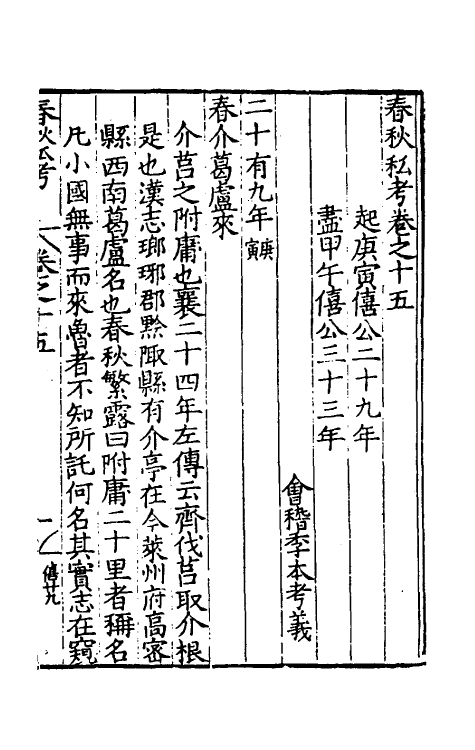 春秋私考卷之十五
起庚寅僖公二十九年
盡甲午僖公三十三年
會稽季本考義
二十有九年庚寅
春介葛盧來
介莒之附庸也襄二十四年左傳云齊伐莒取介根
是也漢志瑯琊郡黔陬縣有介亭在今萊州府高密
縣西南葛盧名也春秋繁露曰附庸二十里者稱名
凡小國無事而來魯者不知所託何名其實志在窺
春秋私考
卷之十五
一
僖廿九